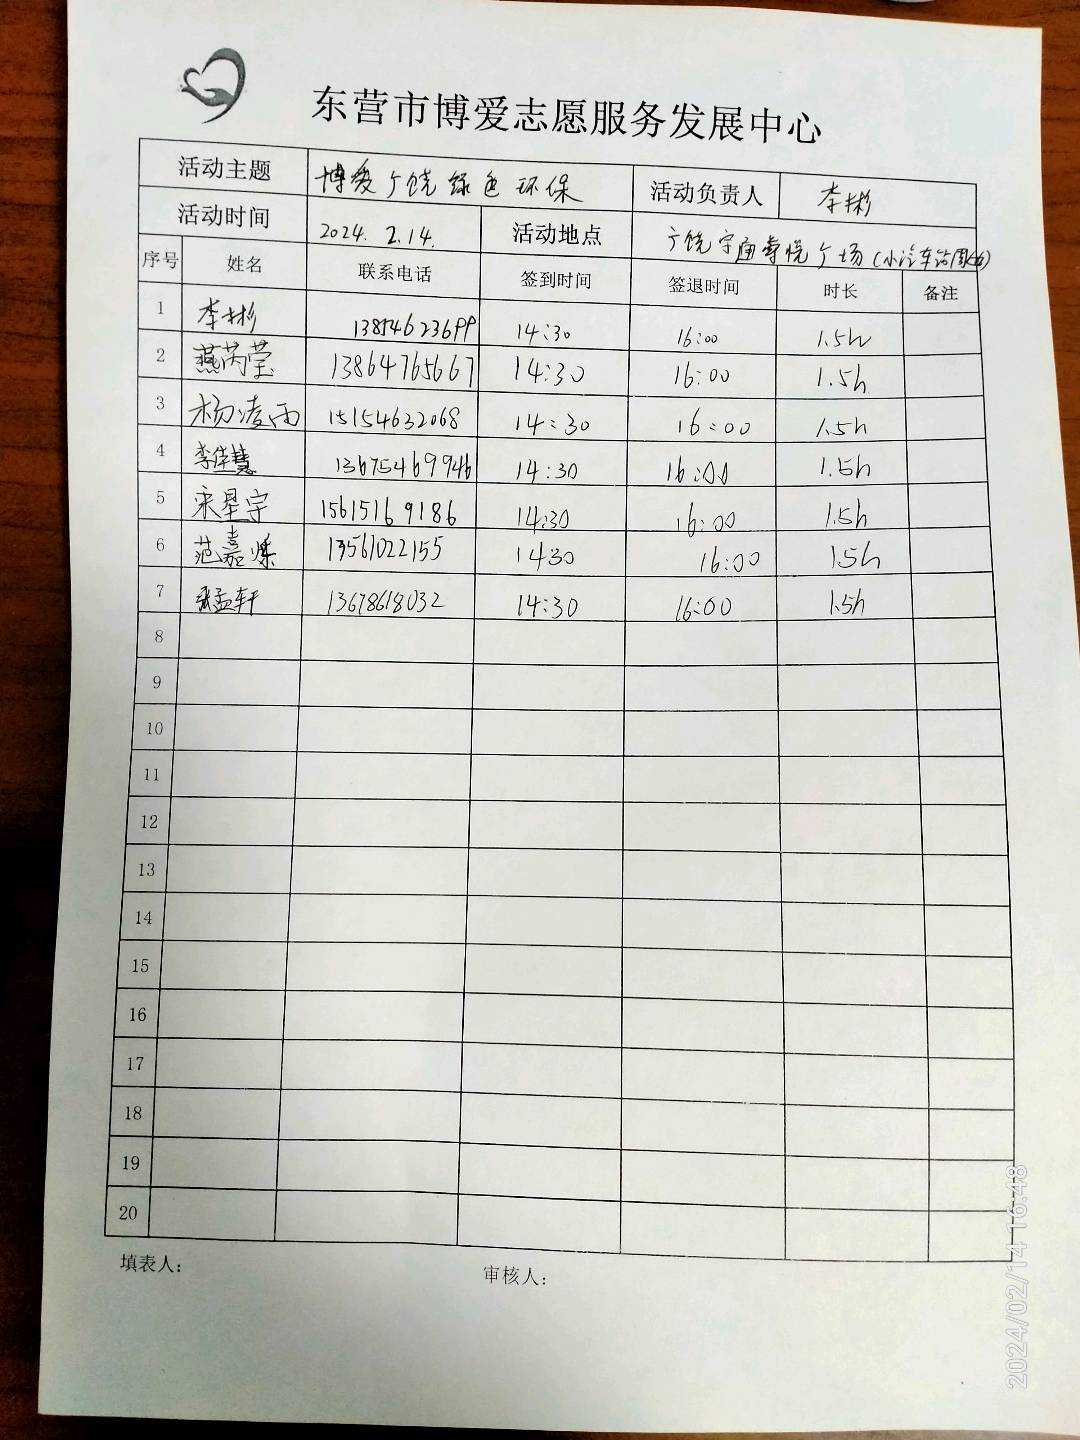 东营市博爱志愿服务发展中心
活动主题 博爱广饶绿色环保 活动负责人 李彬
活动时间 2024. 2.14. 活动地点 广饶宇通尊悦广场(小汽车站周边)
序号 姓名 联系电话 签到时间 签退时间 时长 备注
1 李彬 13854623699 14:30 16:00 1.5h
2 燕芮莹 13864765667 14:30 16:00 1.5h
3 杨凌雨 15154632068 14:30 16:00 1.5h
4 李佳慧 13675469946 14:30 16:00 1.5h
5 宋星宇 15615169186 14:30 16:00 1.5h
6 范嘉烁 13561022155 1430 16:00 1.5h
7 张孟轩 13678618032 14:30 16:00 1.5h
8
9
10
11
12
13
14
15
16
17
18
19
20
填表人: 审核人:
2024/02/14 16:48